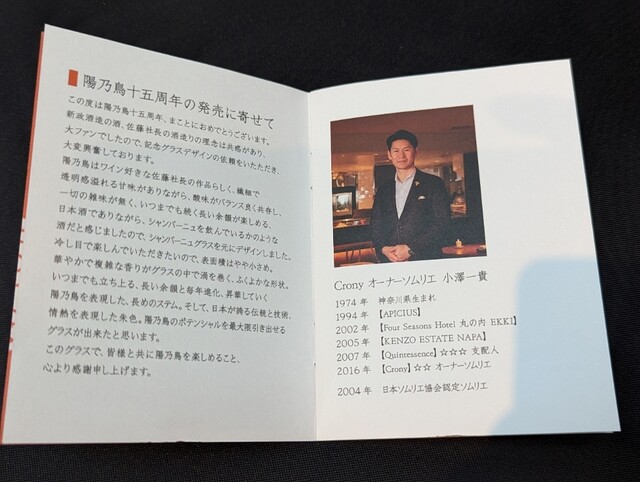 陽乃鳥十五周年の発売に寄せて
この度は陽乃鳥十五周年、まことにおめでとうございます。
新政酒造の酒、佐藤社長の酒造りの理念は共感があり、
大ファンでしたので、記念グラスデザインの依頼をいただき、
大変興奮しております。
陽乃鳥はワイン好きな佐藤社長の作品らしく、繊細で
透明感溢れる甘味がありながら、酸味がバランス良く共存し、
一切の雑味が無く、いつまでも続く長い余韻が楽しめる、
日本酒でありながら、シャンパーニュを飲んでいるかのような
酒だと感じましたので、シャンパーニュグラスを元にデザインしました。
冷し目で楽しんでいただきたいので、表面積はやや小さめ。
華やかで複雑な香りがグラスの中で渦を巻く、ふくよかな形状。
いつまでも立ち上る、長い余韻と毎年進化、昇華していく
陽乃鳥を表現した、長めのステム。そして、日本が誇る伝統と技術、
情熱を表現した朱色。陽乃鳥のポテンシャルを最大限引き出せる
グラスが出来たと思います。
このグラスで、皆様と共に陽乃鳥を楽しめること、
心より感謝申し上げます。
Crony オーナーソムリエ 小澤一貴
1974年 神奈川県生まれ
1994年 【APICIUS】
2002年 【Four Seasons Hotel 丸の内 EKKI】
2005年 【KENZO ESTATE NAPA】
2007年 【Quintessence】☆☆☆ 支配人
2016年 【Crony】☆☆ オーナーソムリエ
2004年 日本ソムリエ協会認定ソムリエ